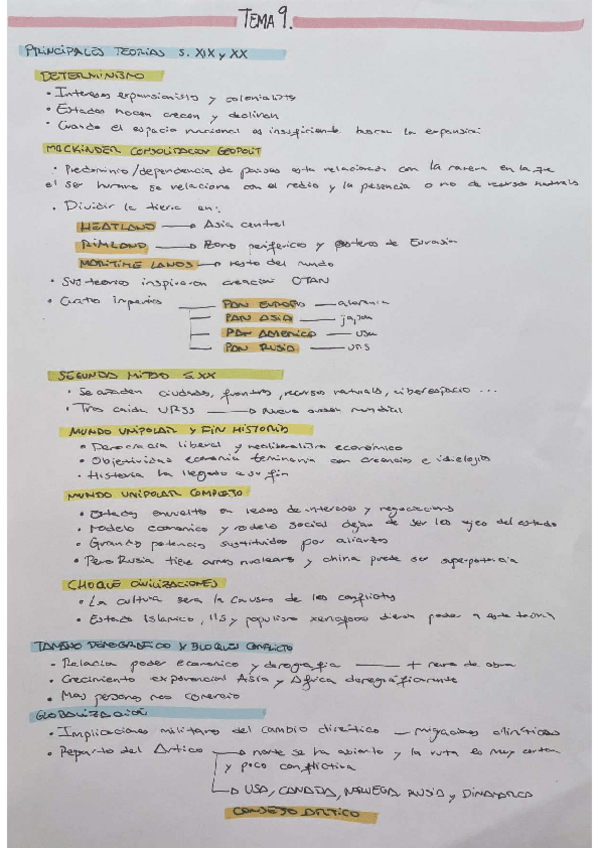 TEMA 9.
PRINCIPALES TEORIAS S. XIX y XX
DETERMINISMO
• Intereses expansionistas y colonialistas
• Estados nacen crecen y declinan
• Cuando el espacio nacional es insuficiente buscan la expansión.
MACKINDER CONSOLIDACION GEOPOLIT
• Predominio/dependencia de paises esta relacionado con la manera en la que
el ser humano se relaciona con el medio y la presencia o no de recursos naturals
• Dividir la tierra en:
HEATLAND → Asia central
RIMLAND → Zona perifericos y costeros de Eurasia
MARITIME LANDS → resto del mundo
• Sus teorias inspiraron creacion OTAN
• Cuatro imperios — PAN EUROPA — alemania
PAN ASIA — japon
PAN AMERICA — usa
PAN RUSIA — urs
SEGUNDA MITAD S.XX
• Se añaden ciudades, fronteras, recursos naturals, ciberespacio ...
• Tras caida URSS → Nuevo orden mundial
MUNDO UNIPOLAR y FIN HISTORIA
• Democracia liberal y neoliberalismo económico
• Objetividad economia terminaria con creencias e ideologias
• Historia ha llegado a su fin
MUNDO UNIPOLAR COMPLEJO
• Estados envuelto en redes de intereses y negociacions
• Modelo economico y modelo social dejan de ser los ejes del estado
• Grandes potencias sustituidos por aliartes
• Pero Rusia tiene armas nuclears y china puede ser superpotencia
CHOQUE CIVILIZACIONES
• La cultura sera la causa de los conflictos
• Estado Islamico, 11S y populismo xenofobo dieron poder a esta teoria
TAMAÑO DEMOGRAFICO Y BLOQUES CONFLICTO
• Relacion poder economico y demografia — + mano de obra
• Crecimiento exponencial Asia y Africa demográficamente
• Mas personas mas comercio
GLOBALIZACION
• Implicaciones militares del cambio climático — migraciones climáticas
• Reparto del Artico → norte se ha abierto y la ruta es muy corta
y poco conflictiva
→ USA, CANADA, NORUEGA RUSIA y DINAMARCA
CONSEJO ARTICO